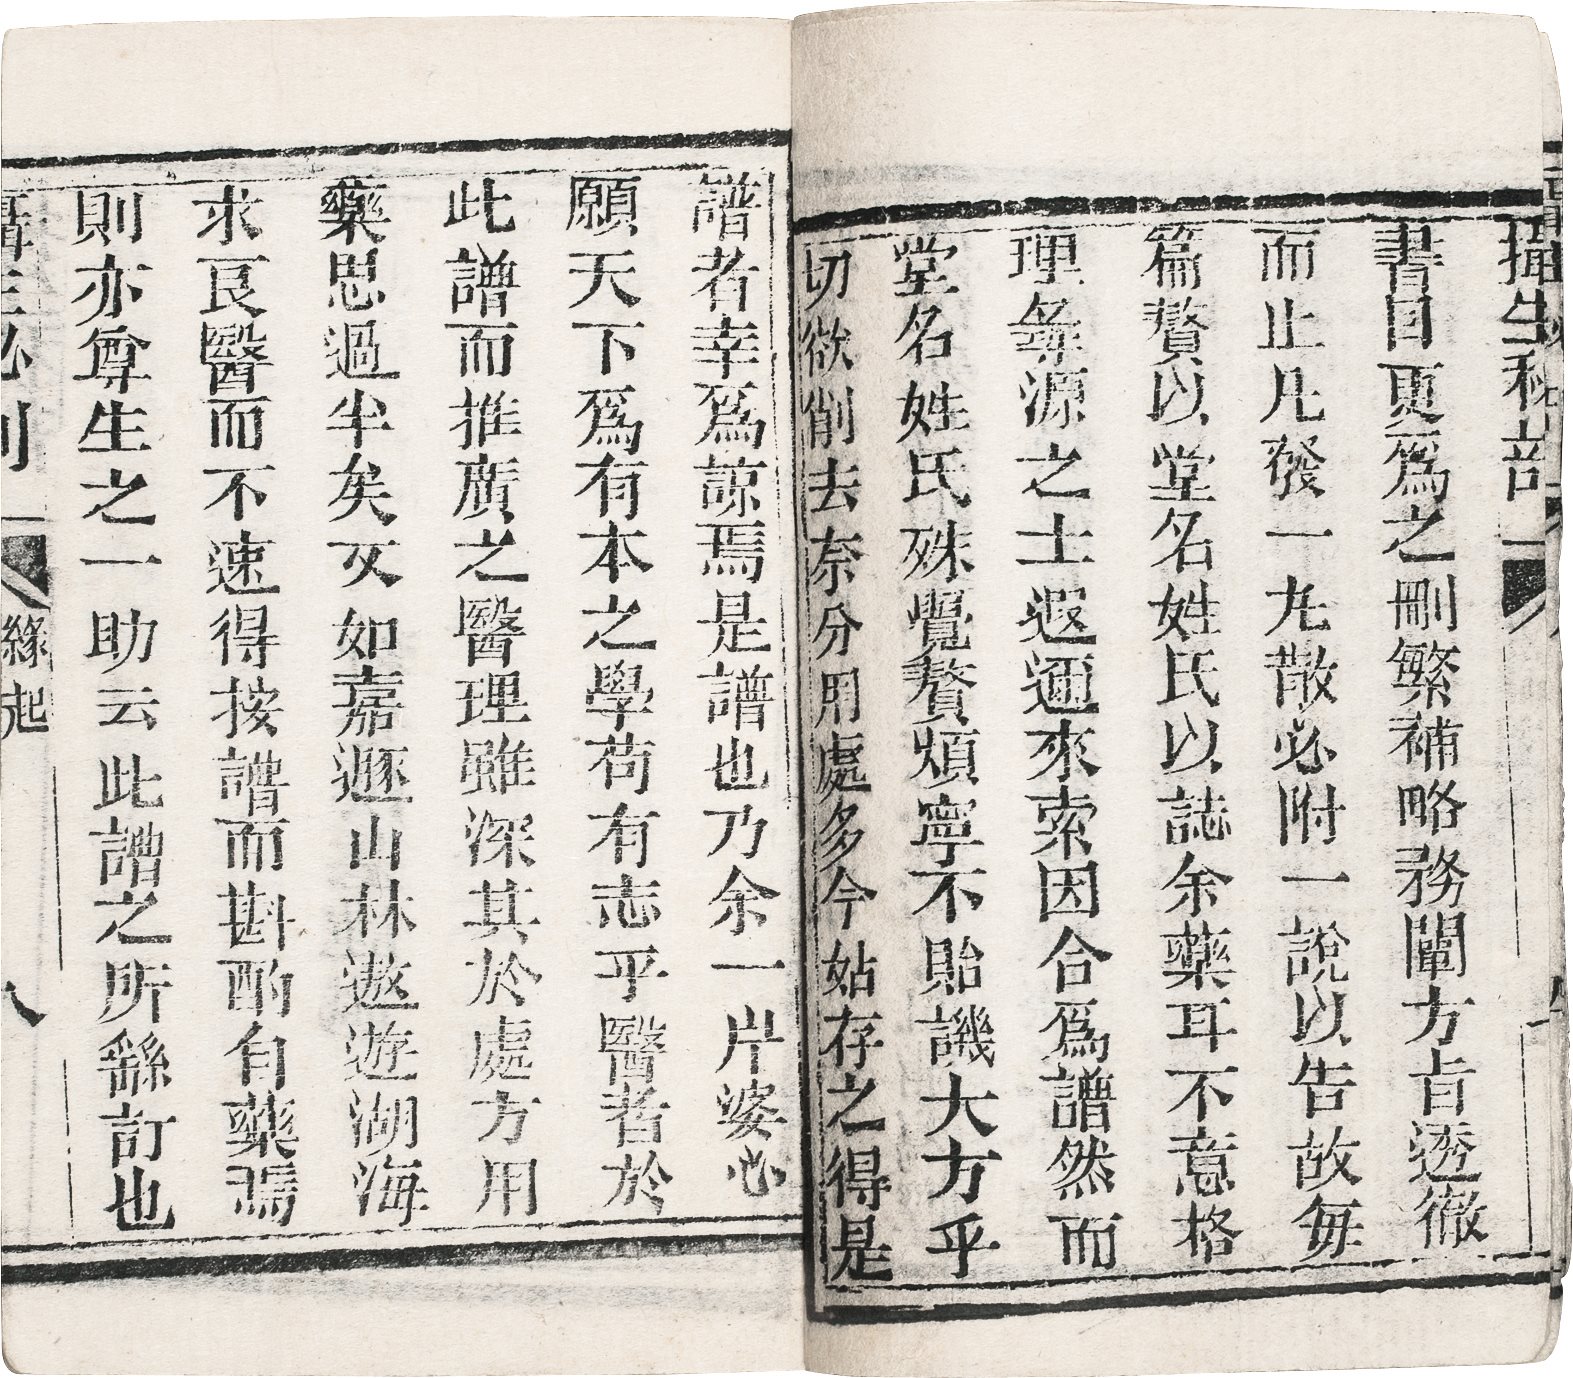 攝生秘剖
書目更爲之刪繁補略務闡方旨透徹
而止凡發一丸散必附一說以告故每
篇贅以堂名姓氏以誌余藥耳不意格
理彝源之士遐邇來索因合爲譜然而
堂名姓氏殊覺贅煩寧不貽譏大方乎
切欲削去奈分用處多今姑存之得是
譜者幸爲諒焉是譜也乃余一片婆心
願天下爲有本之學苟有志乎醫者於
此譜而推廣之醫理雖深其於處方用
藥思過半矣又如嘉遯山林遨遊湖海
求良醫而不速得按譜而斟酌自藥焉
則亦尊生之一助云此譜之所繇訂也
緣起
八